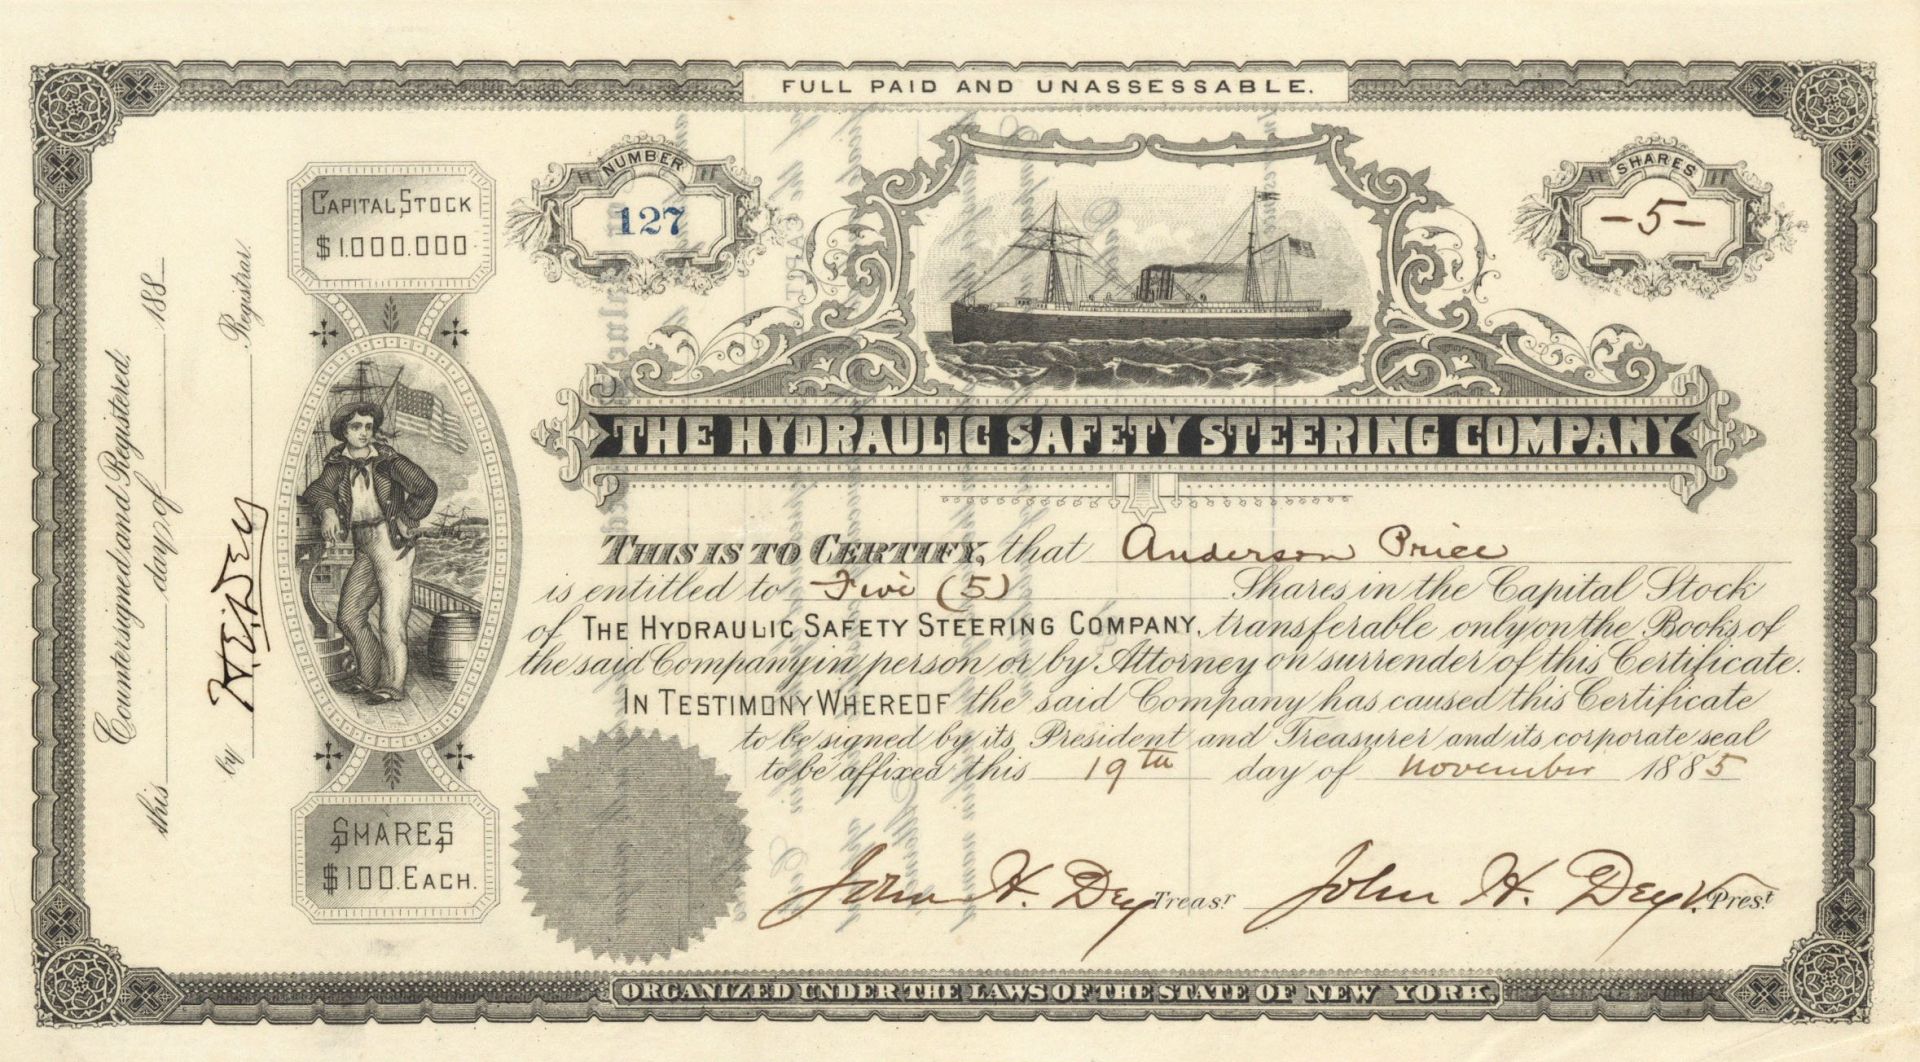 FULL PAID AND UNASSESSABLE.
NUMBER
127
SHARES
-5-
CAPITAL STOCK
$1.000.000
THE HYDRAULIC SAFETY STEERING COMPANY
THIS IS TO CERTIFY, that Anderson Price
is entitled to Five (5) Shares in the Capital Stock
of THE HYDRAULIC SAFETY STEERING COMPANY, transferable only on the Books of
the said Company in person or by Attorney on surrender of this Certificate.
IN TESTIMONY WHEREOF the said Company has caused this Certificate
to be signed by its President and Treasurer and its corporate seal
to be affixed this 19th day of November 1885
John H. Dey Treasr John H. Dey V. Prest
SHARES
$100. EACH.
Countersigned and Registered.
this day of 188
by H.E. Dey Registrar.
ORGANIZED UNDER THE LAWS OF THE STATE OF NEW YORK.